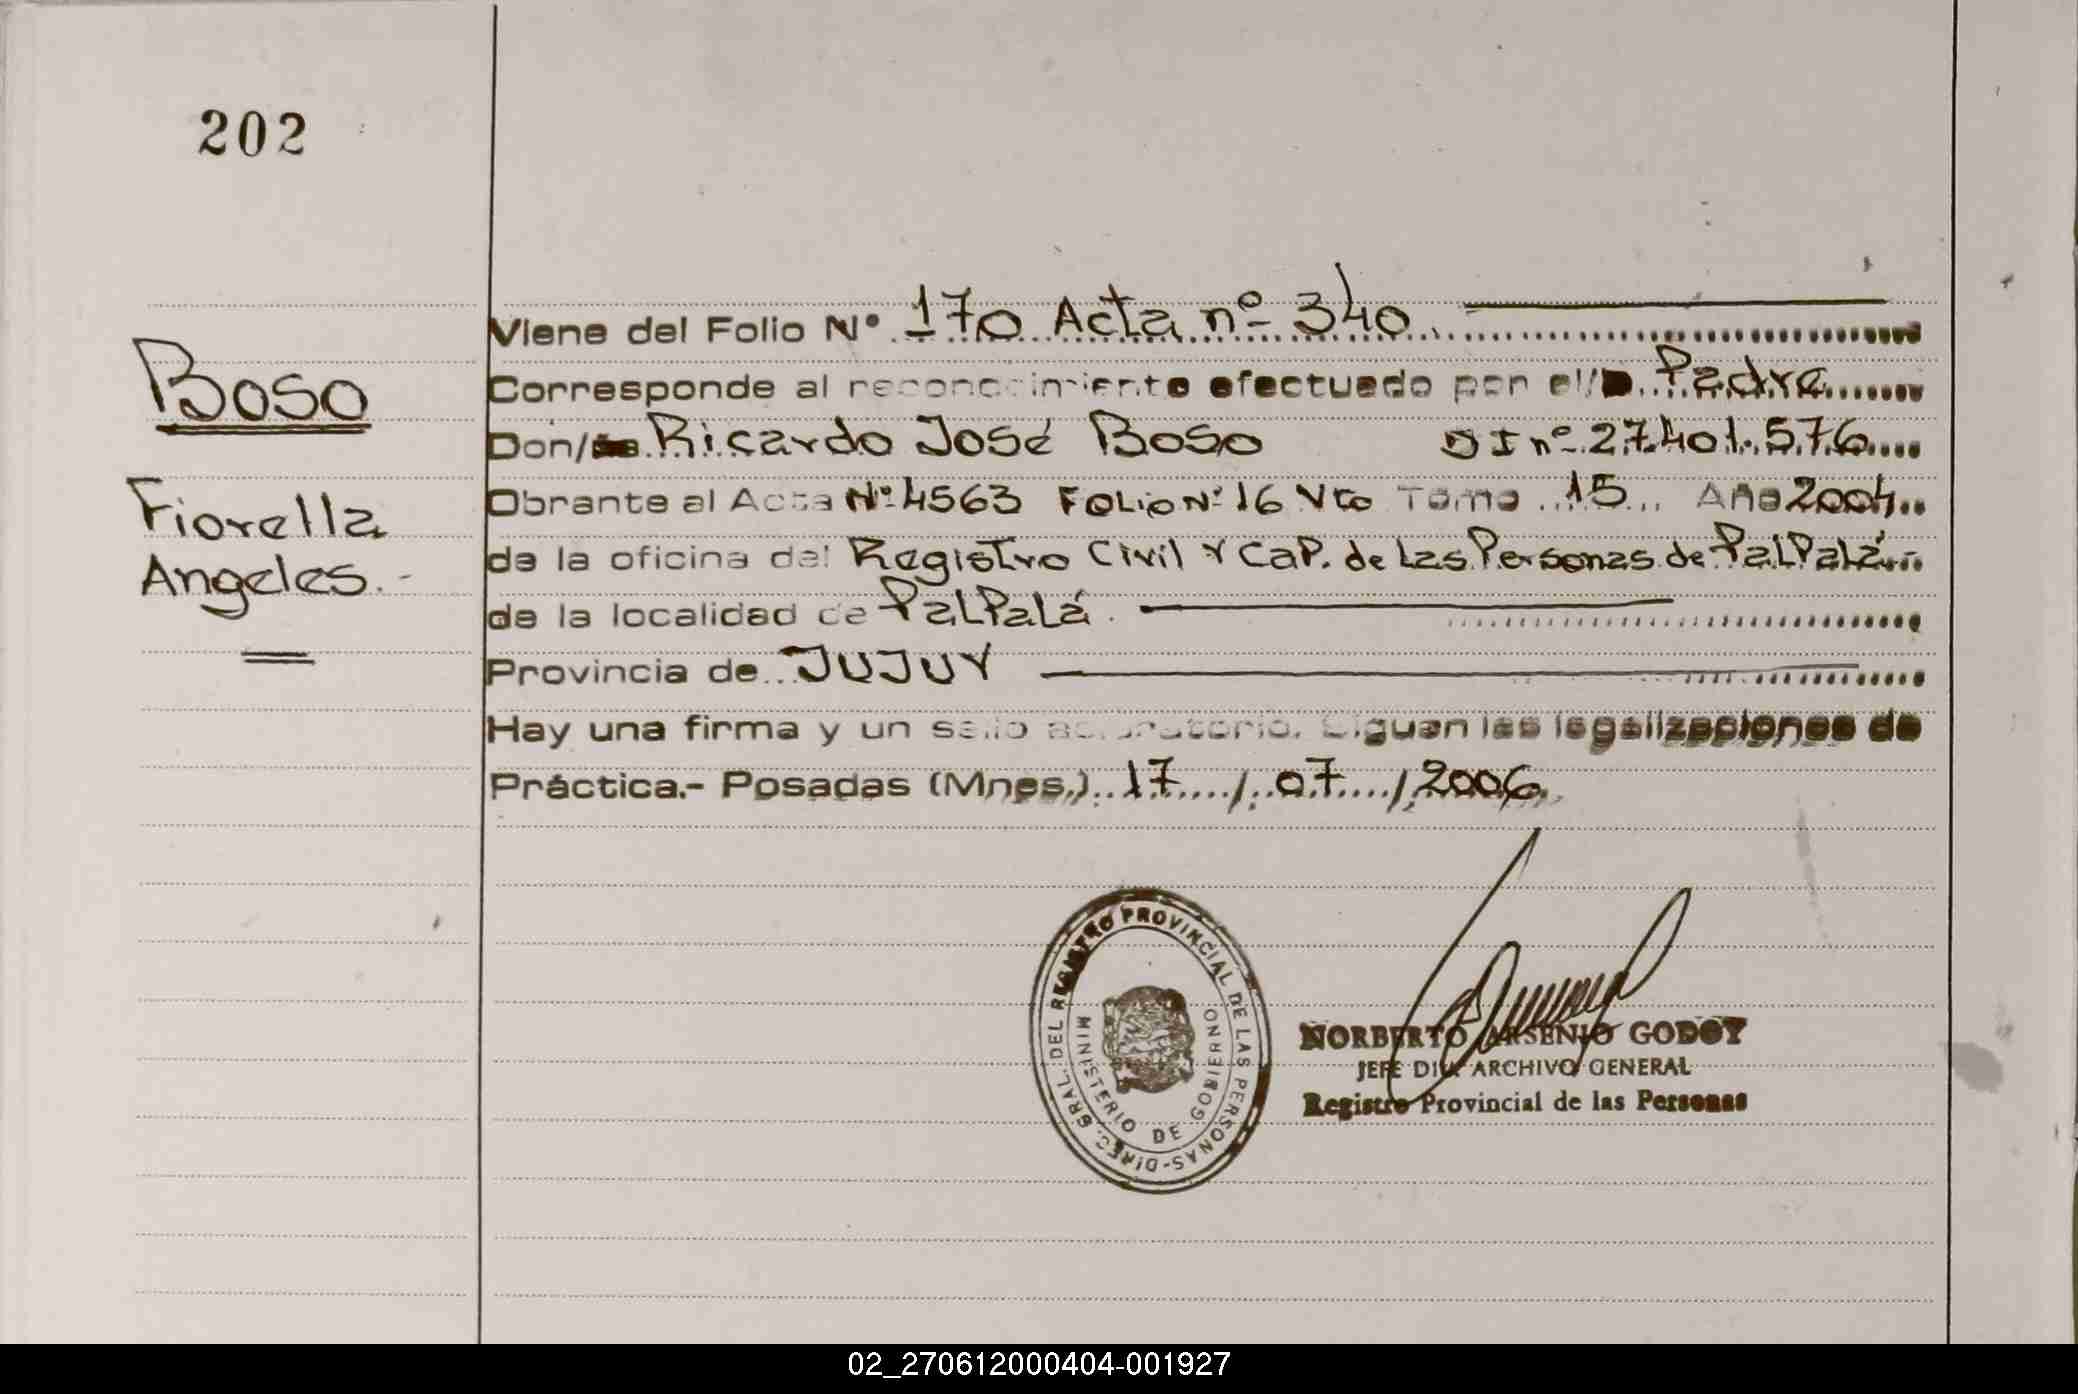 202
Viene del Folio Nº 170 Acta nº 340
Corresponde al reconocimiento efectuado por el/ Padre
Don/ Ricardo José Boso DI nº 27.401.576
Obrante al Acta Nº 4563 Folio Nº 16 Vto Tomo 15 Año 2004
de la oficina del Registro Civil y Cap. de Las Personas de PalPalá
de la localidad de PalPalá
Provincia de JUJUY
Hay una firma y un sello aclaratorio. Siguen las legalizaciones de
Práctica.- Posadas (Mnes.) 17 / 07 / 2006
Boso
Fiorella
Angeles.-
DIREC. GRAL. DEL REGISTRO PROVINCIAL DE LAS PERSONAS-
MINISTERIO DE GOBIERNO
NORBERTO ARSENIO GODOY
JEFE DIV. ARCHIVO GENERAL
Registro Provincial de las Personas
02_270612000404-001927